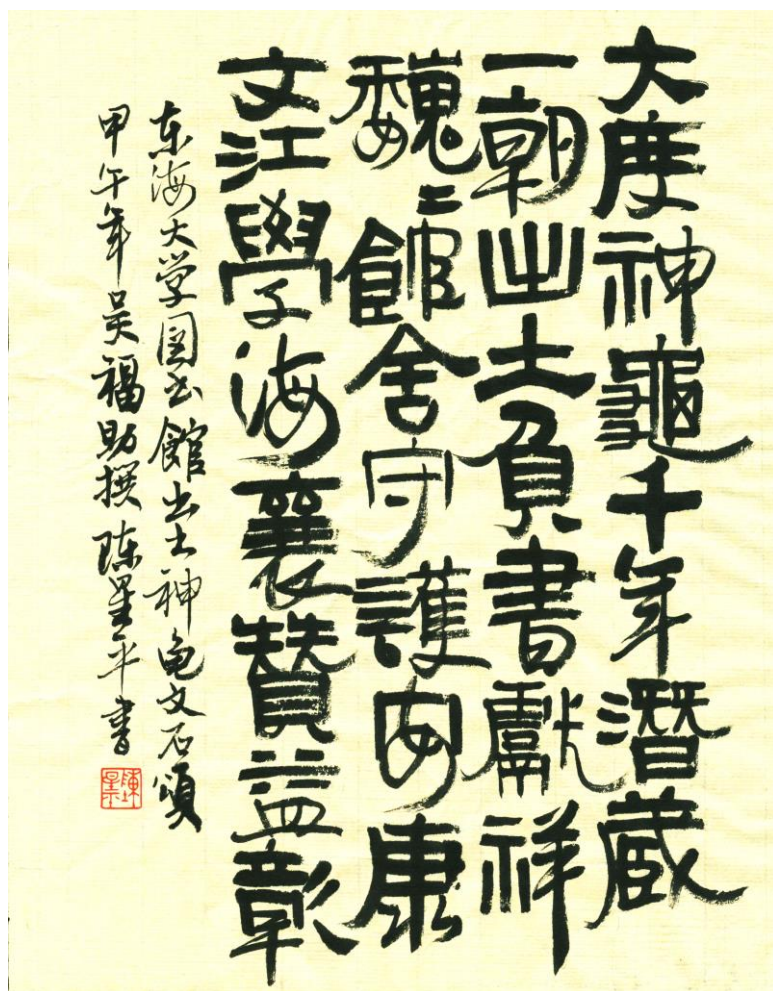 大度神龜千年潜藏
一朝出土負書獻祥
巍〻館舍守護安康
文江學海襄贊益彰
东海大学图书館出土神龟文石頌
甲午年吴福助撰陈星平書